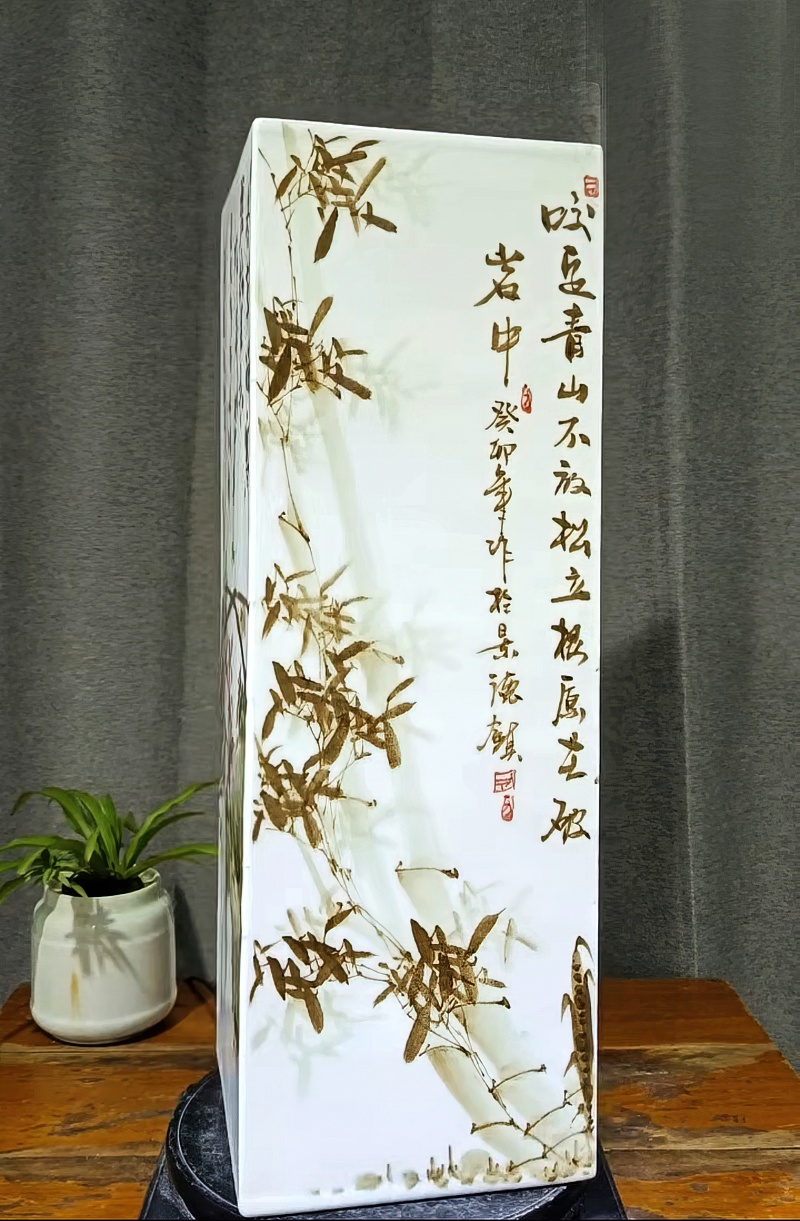 咬定青山不放松立根原在破
岩中 癸卯年作於景德鎮